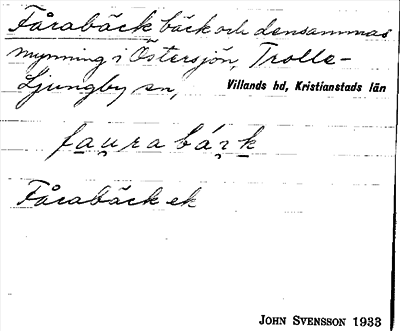 Fårabäck bäck och densammas
mynning i Östersjön, Trolle-
Ljungby sn, Villands hd, Kristianstads län
fau̯rabáæ̯k
Fårabäck ek
John Svensson 1933